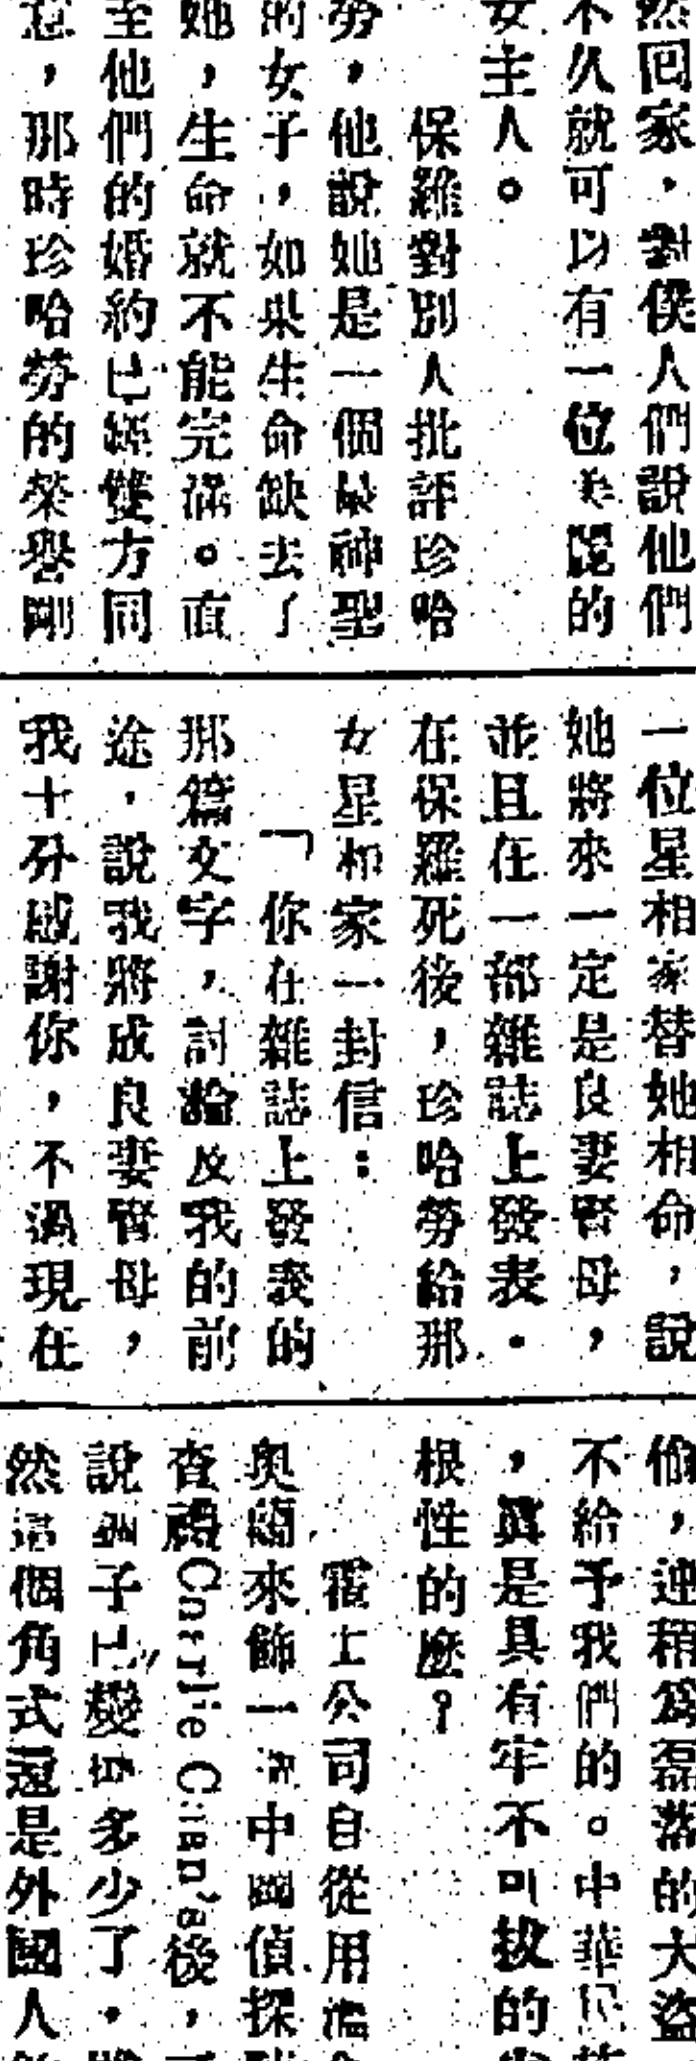 然回家,對僕人們說他們
不久就可以有一位美麗的
女主人。
保羅對別人批評珍哈
勞,他說她是一個最神聖
的女子,如果生命缺去了
她,生命就不能完滿。直
至他們的婚約已經雙方同
意,那時珍哈勞的榮譽剛
一位星相家替她相命,說
她將來一定是良妻賢母,
並且在一部雜誌上發表.
在保羅死後,珍哈勞給那
女星相家一封信:
「你在雜誌上發表的
那篇文字,討論及我的前
途,說我將成良妻賢母,
我十分感謝你,不過現在
偷,連稱為磊落的大盜
不給予我們的。中華民族
,眞是具有牢不可拔的
根性的麽?
霍士公司自從用溫
奧蘭來飾一 中國偵探
查禮Charlie Chan's後,
說 子已變 多少了.
然這個角式還是外國人